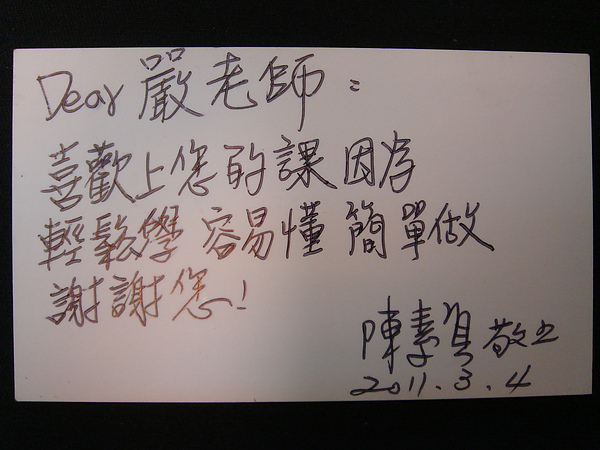 Dear 嚴老師：
喜歡上您的課因為
輕鬆學 容易懂 簡單做
謝謝您！
陳素貞 敬上
2011.3.4